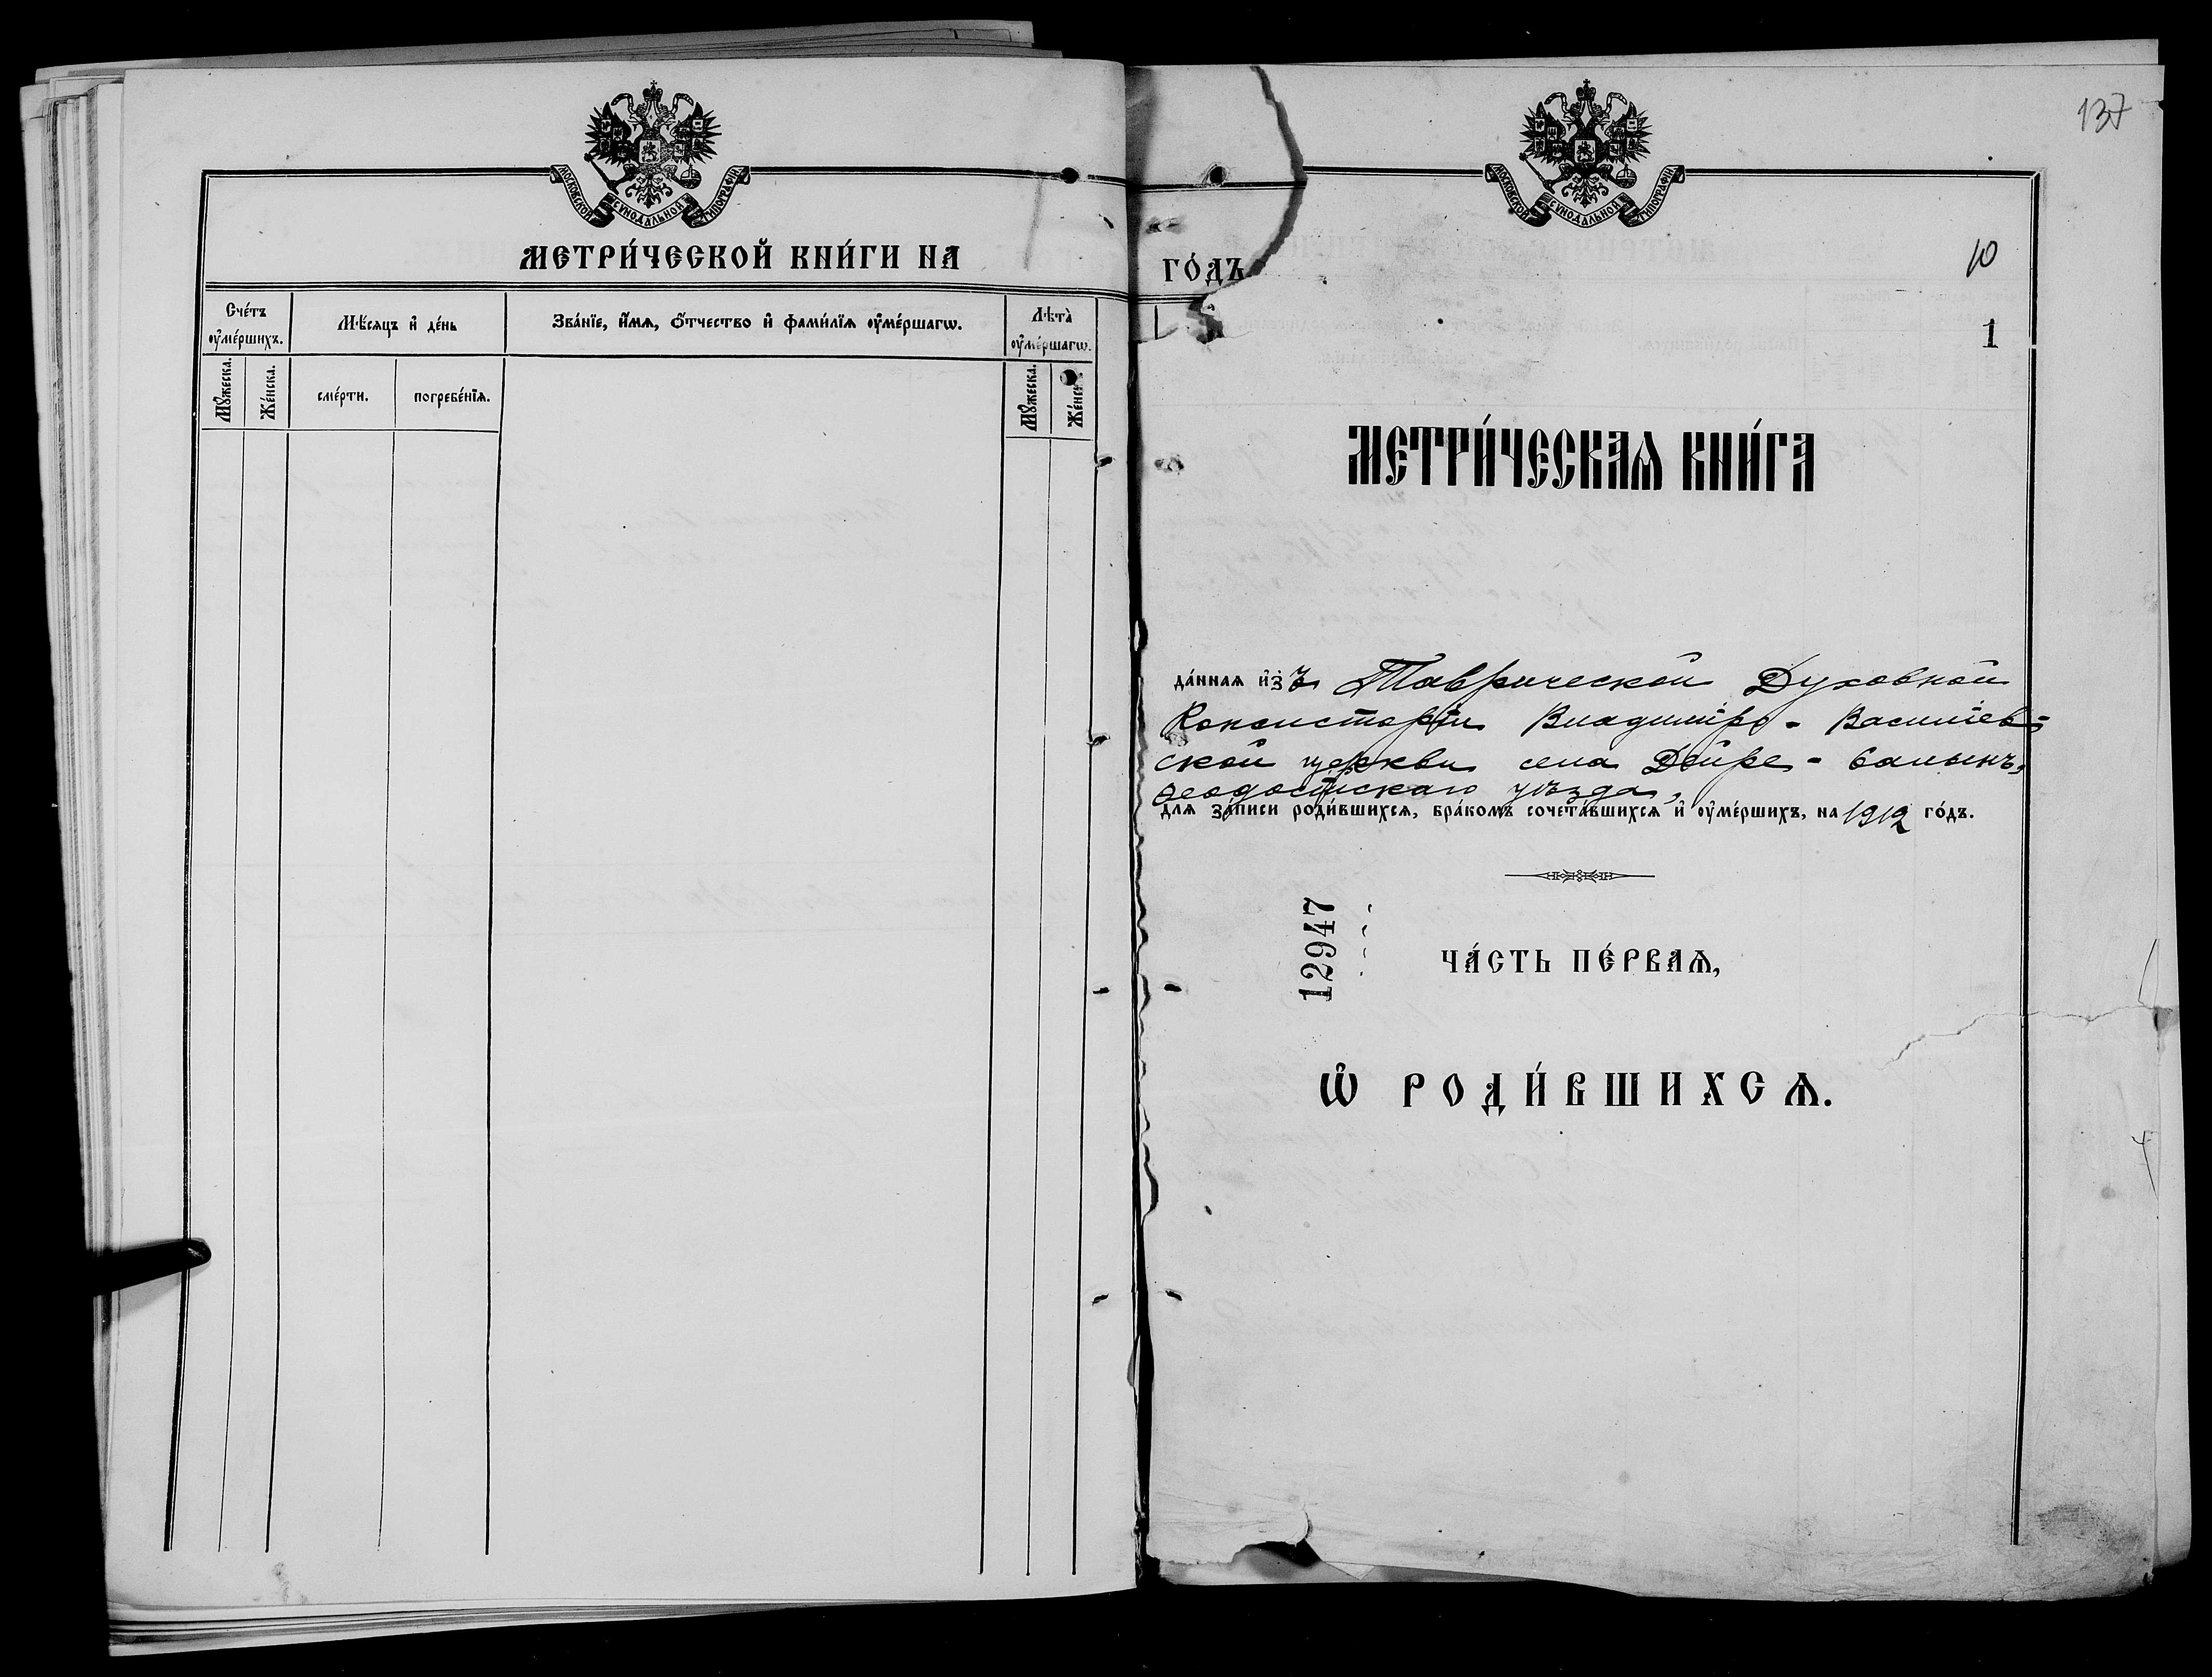 МОСКОВСКОЙ СѴНОДАЛЬНОЙ ТИПОГРАФІИ
МЕТРИ́ЧЕСКОЙ КНИ́ГИ НА
Сче́тъ ᲂу҆ме́ршихъ.
Мѣ́сяцъ и҆ де́нь
Зва́нїе, и҆́мѧ, ѻ҆́тчество и҆ фами́лїѧ ᲂу҆ме́ршагѡ.
Лѣта̀ ᲂу҆ме́ршагѡ.
Мꙋ́жеска.
Же́нска.
сме́рти.
погребе́нїѧ.
Мꙋ́жеска.
Же́нск
137
МОСКОВСКОЙ СѴНОДАЛЬНОЙ ТИПОГРАФІИ
ГО́ДЪ
10
1
МЕТРИ́ЧЕСКАѦ КНИ́ГА
да́ннаѧ и҆зъ Таврической Духовной
Консисторіи Владиміро-Васильев-
ской церкви села Дейре-
Ѳеодосійскаго уѣзда,
для за́писи роди́вшихсѧ, бра́комъ сочета́вшихсѧ и҆ ᲂу҆ме́ршихъ, на 1912 го́дъ.
12947
ЧА́СТЬ ПЕ́РВАѦ,
Ѡ҆ РОДИ́ВШИХСѦ.